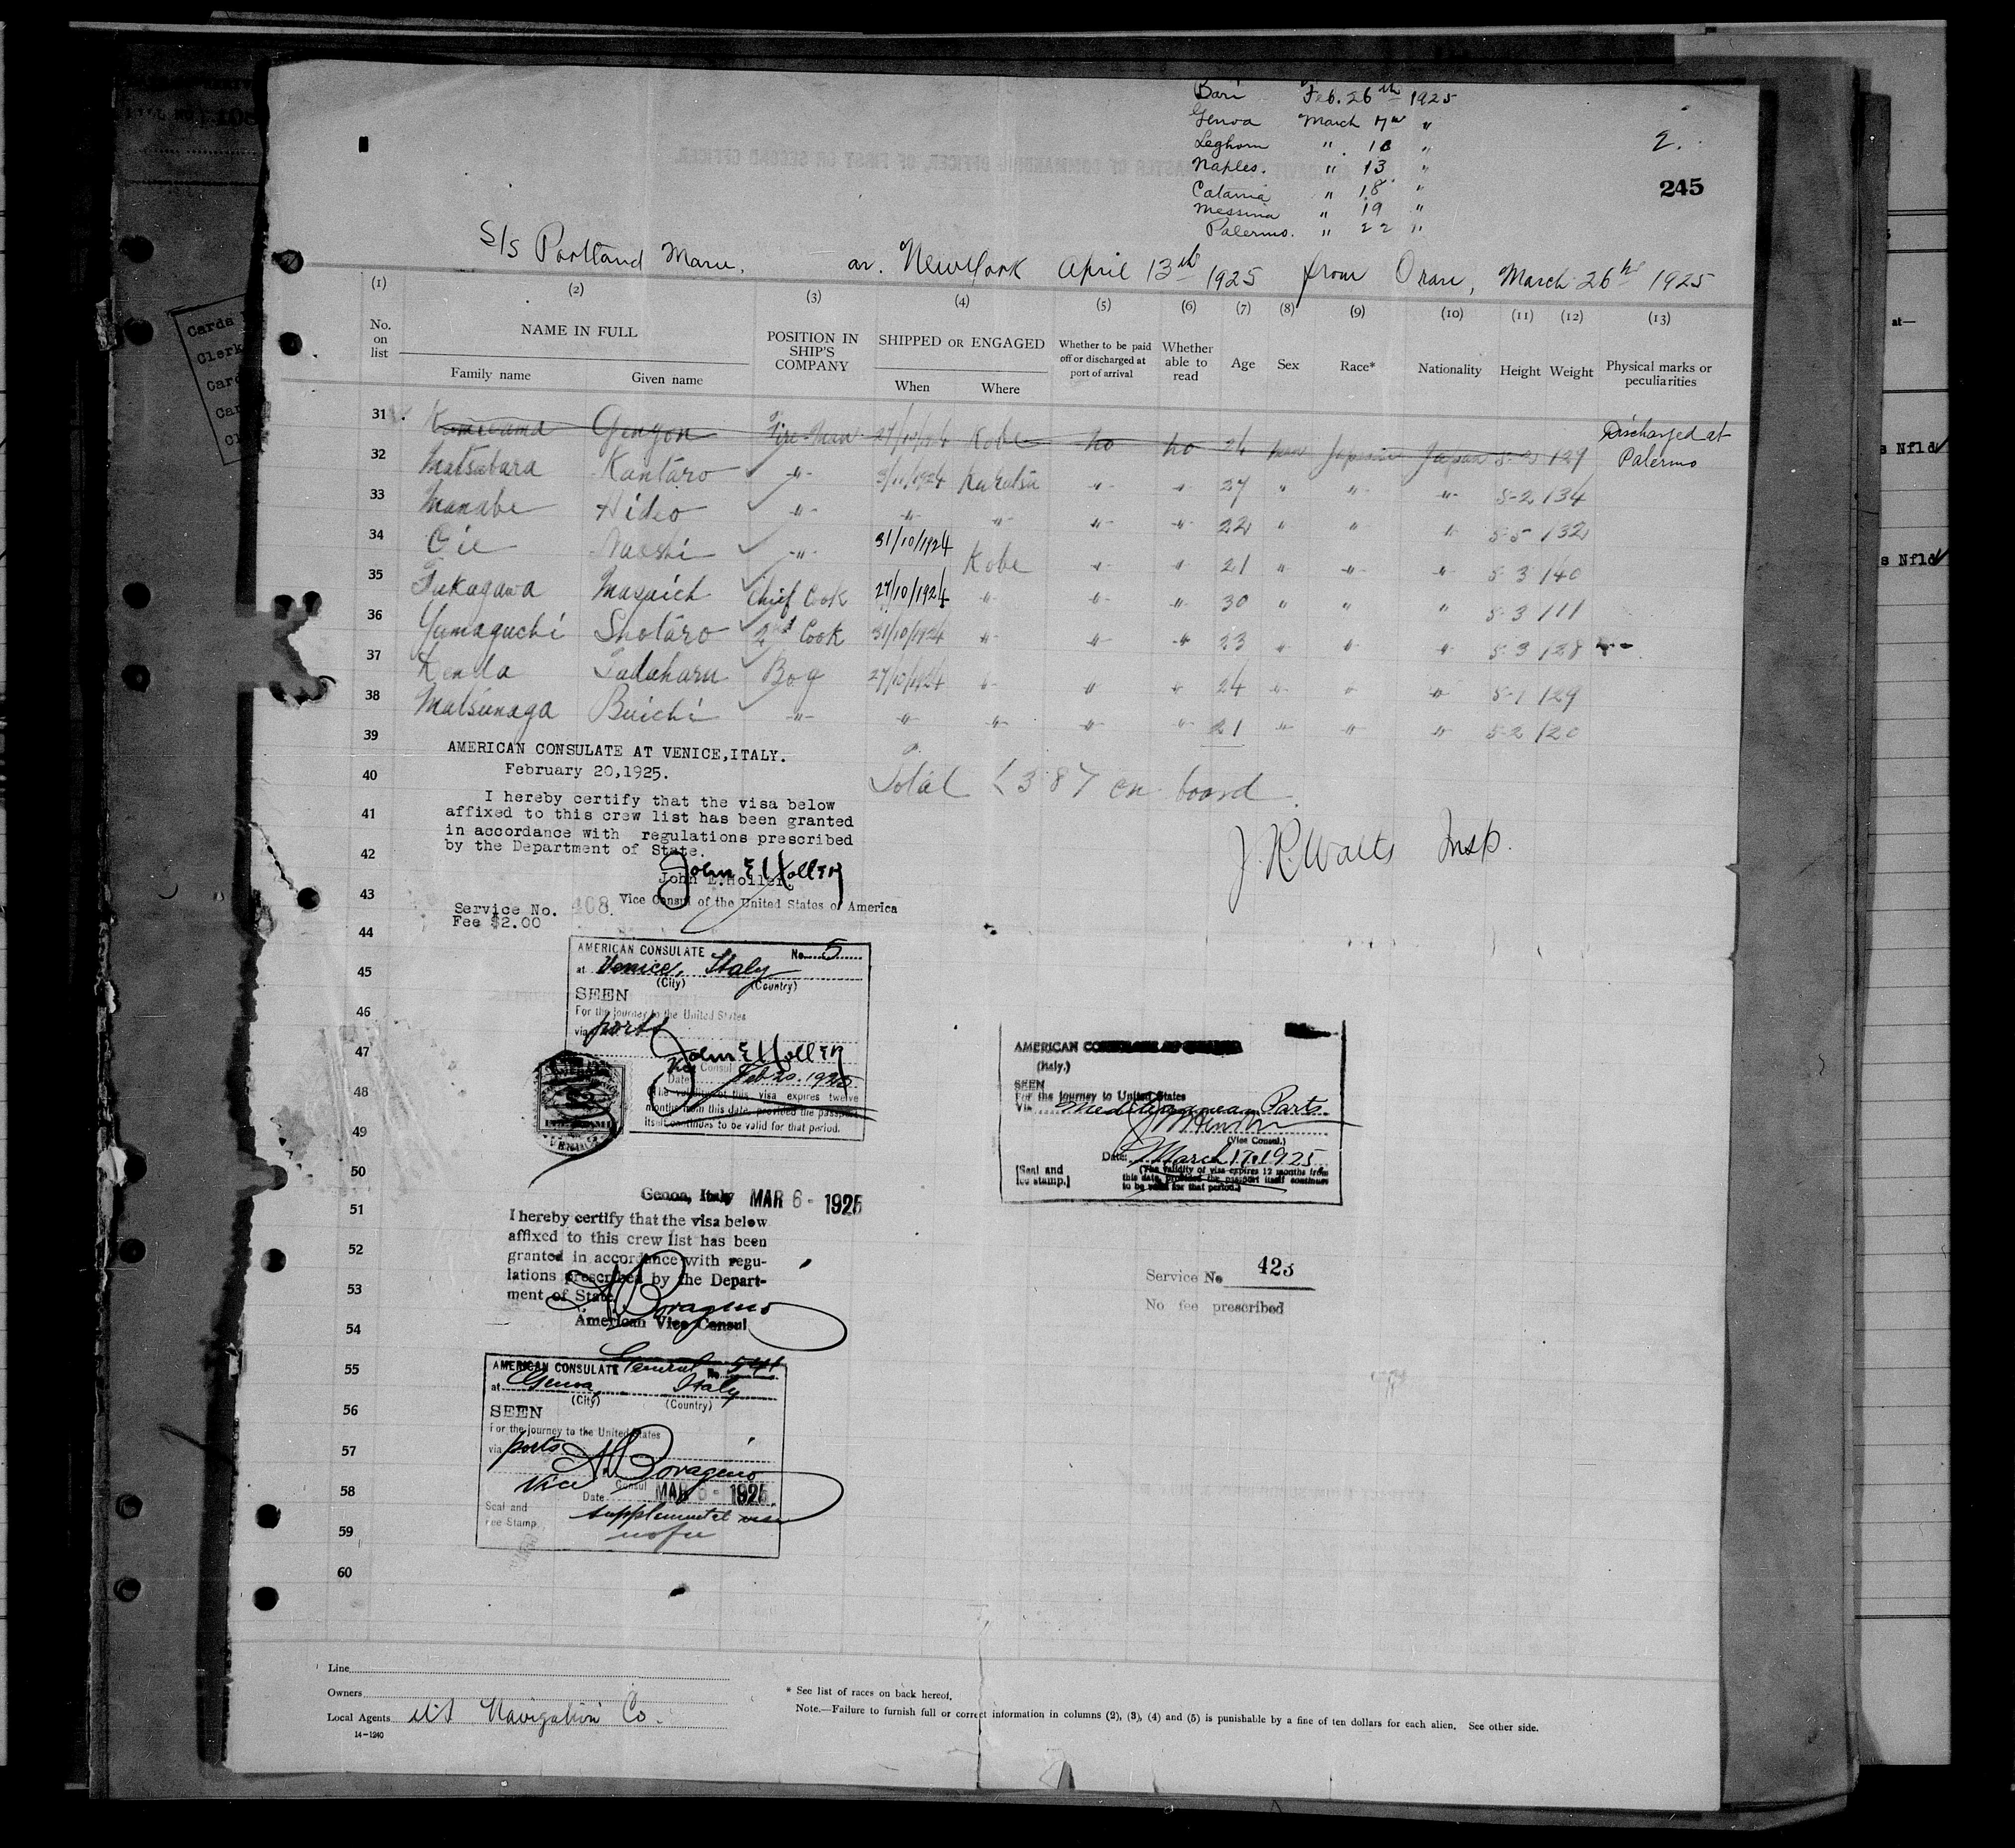 Bari Feb. 26th 1925
Genoa March 7th "
Leghorn " 10 "
Naples. " 13 "
Catania " 18 "
Messina " 19 "
Palermo. " 22 "
2.
245
S/S Portland Maru. ar. New York April 13th 1925 from Oran, March 26th 1925
(1) (2) (3) (4) (5) (6) (7) (8) (9) (10) (11) (12) (13)
No. on list NAME IN FULL POSITION IN SHIP'S COMPANY SHIPPED OR ENGAGED Whether to be paid off or discharged at port of arrival Whether able to read Age Sex Race* Nationality Height Weight Physical marks or peculiarities
Family name Given name When Where
31 Gengon Fire-man 27/10/1924 Kobe no no 26 man Japanese Japan 5-3 129 Discharged at Palermo
32 Matsubara Kantaro " 3/11/1924 " " 27 " " " 5-2 134
33 Manabe Hideo " " " " " 22 " " " 5-5 132
34 Oie Naoshi " 31/10/1924 Kobe " " 21 " " " 5-3 140
35 Fukagawa Masaich Chief Cook 27/10/1924 " " " 30 " " " 5-3 111
36 Yamaguchi Shotaro 2nd Cook 31/10/1924 " " " 23 " " " 5-3 128
37 Kenda Tadaharu Boy 27/10/1924 " " " 24 " " " 5-1 129
38 Matsunaga Buichi " " " " " 21 " " " 5-2 120
39
AMERICAN CONSULATE AT VENICE, ITALY.
February 20,1925.
40
Total <387 on board.
I hereby certify that the visa below
41
affixed to this crew list has been granted
in accordance with regulations prescribed
by the Department of State.
42
J. R. Watts Insp.
John E Holler
John E.Holler
43
Vice Consul of the United States of America
Service No. 408.
Fee $2.00
44
AMERICAN CONSULATE No. 5
45
at Venice, Italy
(City) (Country)
SEEN
46
For the journey to the United States
via ports
47
John E Holler
Vice Consul
Date Feb. 20. 1925
48
(The validity of this visa expires twelve
months from this date, provided the passport
itself continues to be valid for that period.
49
AMERICAN
(Italy.)
SEEN
For the journey to United States
Via Mediterranean Ports
(Vice Consul.)
Date: March 17. 1925
[Seal and fee stamp.]
(The validity of visa expires 12 months from
this date, provided the passport itself continues
to be valid for that period.)
50
Genoa, Italy MAR 6 - 1925
51
I hereby certify that the visa below
affixed to this crew list has been
52
granted in accordance with regu-
lations prescribed by the Depart-
53
ment of State.
A. Boragino
American Vice Consul
54
Service No 423
No fee prescribed
55
AMERICAN CONSULATE General No. 541
at Genoa, Italy
(City) (Country)
56
SEEN
For the journey to the United States
57
via ports
A. Boragino
Vice Consul
58
Date MAR 6 - 1925
Seal and
Fee Stamp
supplemental visa
59
no fee
60
Line
Owners
Local Agents Navigation Co.
14-1240
* See list of races on back hereof.
Note.—Failure to furnish full or correct information in columns (2), (3), (4) and (5) is punishable by a fine of ten dollars for each alien. See other side.
Cards
Clerk
s Nfld
s Nfld
at—